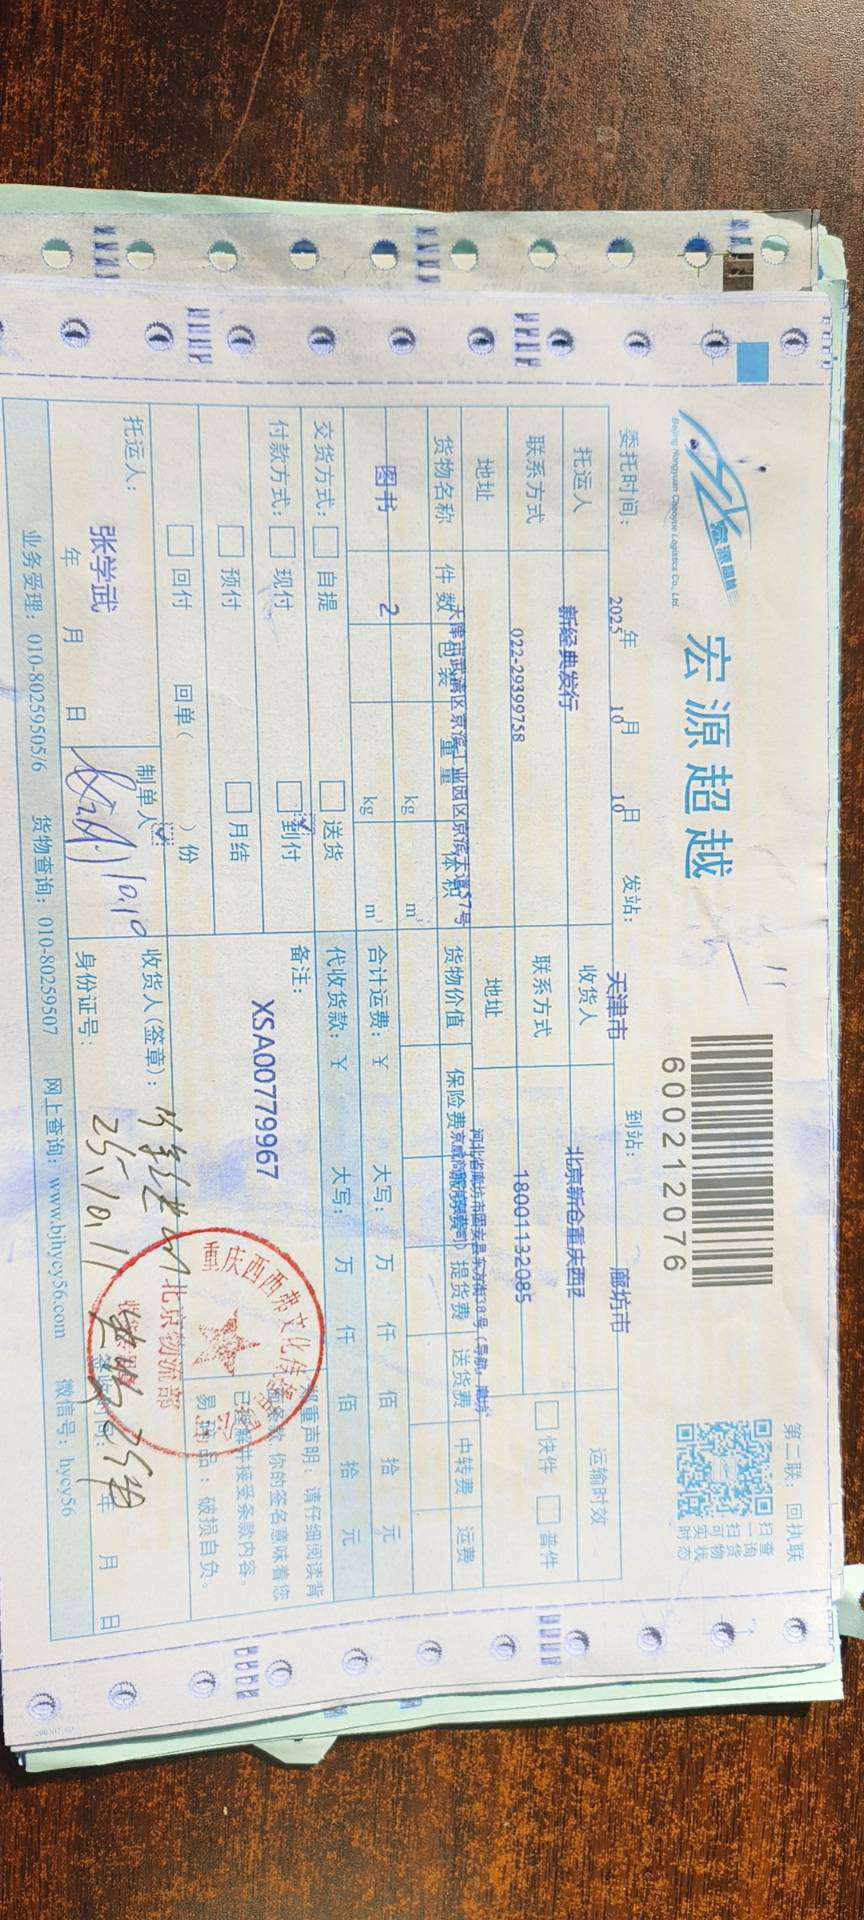 宏源超越
Beijing Hongyuan Chaoyue Logistics Co., Ltd.
宏源超越
600212076
第二联：回执联
扫一扫可实时
查询货物状态
委托时间： 2025年 10月 10日 发站： 天津市 到站： 廊坊市
托运人 新经典发行 收货人 北京新仓重庆西西 运输时效
联系方式 022-29399758 联系方式 18001132085 快件 普件
地址 天津市武清区京滨工业园区京滨大道57号 地址 河北省廊坊市固安县东方街38号（导航：廊坊
货物名称 件数 包装 重量 体积 货物价值 保险费 提货费 送货费 中转费 运费
图书 2 kg m³
kg m³ 合计运费：￥ 大写： 万 仟 佰 拾 元
交货方式： 自提 送货 代收货款：￥ 大写： 万 仟 佰 拾 元
付款方式： 现付 到付 备注：
预付 月结 XSA00779967
回付 回单（ ）份
郑重声明：请仔细阅读背
面条款，你的签名意味着您
已理解并接受条款内容。
易碎品：破损自负。
托运人： 张学武 制单人 收货人（签章）：
10.10
25.10.11
年 月 日 身份证号： 年 月 日
重庆西西弗文化传播
北京物流部
业务受理：010-80259505/6 货物查询：010-80259507 网上查询：www.bjhycy56.com 微信号：hycy56